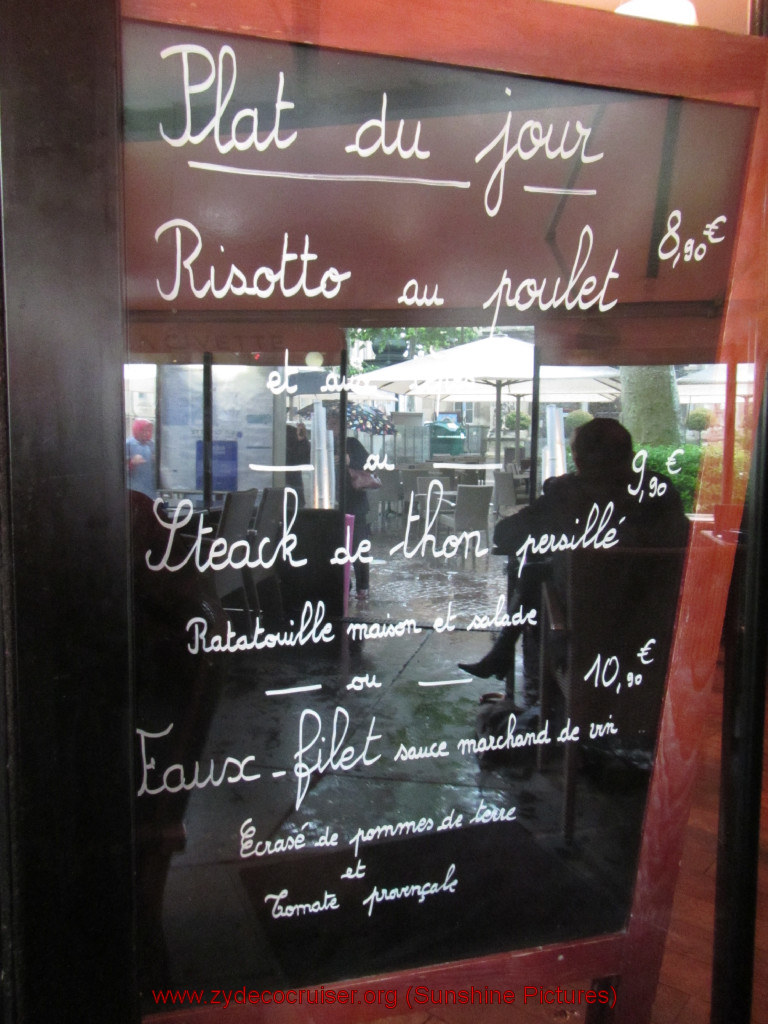 Plat du jour
Risotto au poulet 8,90€
et aux
ou
Steack de thon persillé 9,90€
Ratatouille maison et salade
ou
Faux-filet sauce marchand de vin 10,90€
Ecrasé de pommes de terre
et
Tomate provençale
www.zydecocruiser.org (Sunshine Pictures)